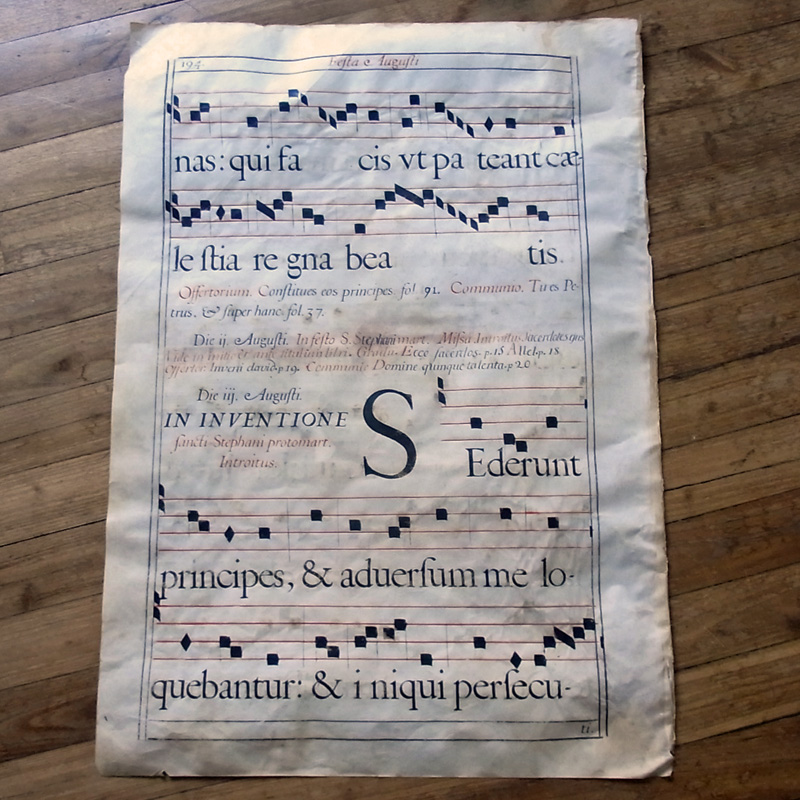 194 Festa Augusti
nas: qui fa cis vt pa teant cæ-
le ſtia re gna bea tis.
Offertorium. Conſtitues eos principes. fol. 91. Communio. Tu es Pe-
trus, & ſuper hanc. fol. 37.
Die ij. Auguſti. In feſto S. Stephani mart. Miſſa Introitus Sacerdotes
Ecce ſacerdos. p. 15 Allel. p. 18
Offertor. Inveni david. p 19. Communio Domine quinque talenta. p 20
Die iij. Auguſti.
IN INVENTIONE
ſancti Stephani protomart.
Introitus.
SEderunt
principes, & aduerſum me lo-
quebantur: & i niqui perſecu-
ti.